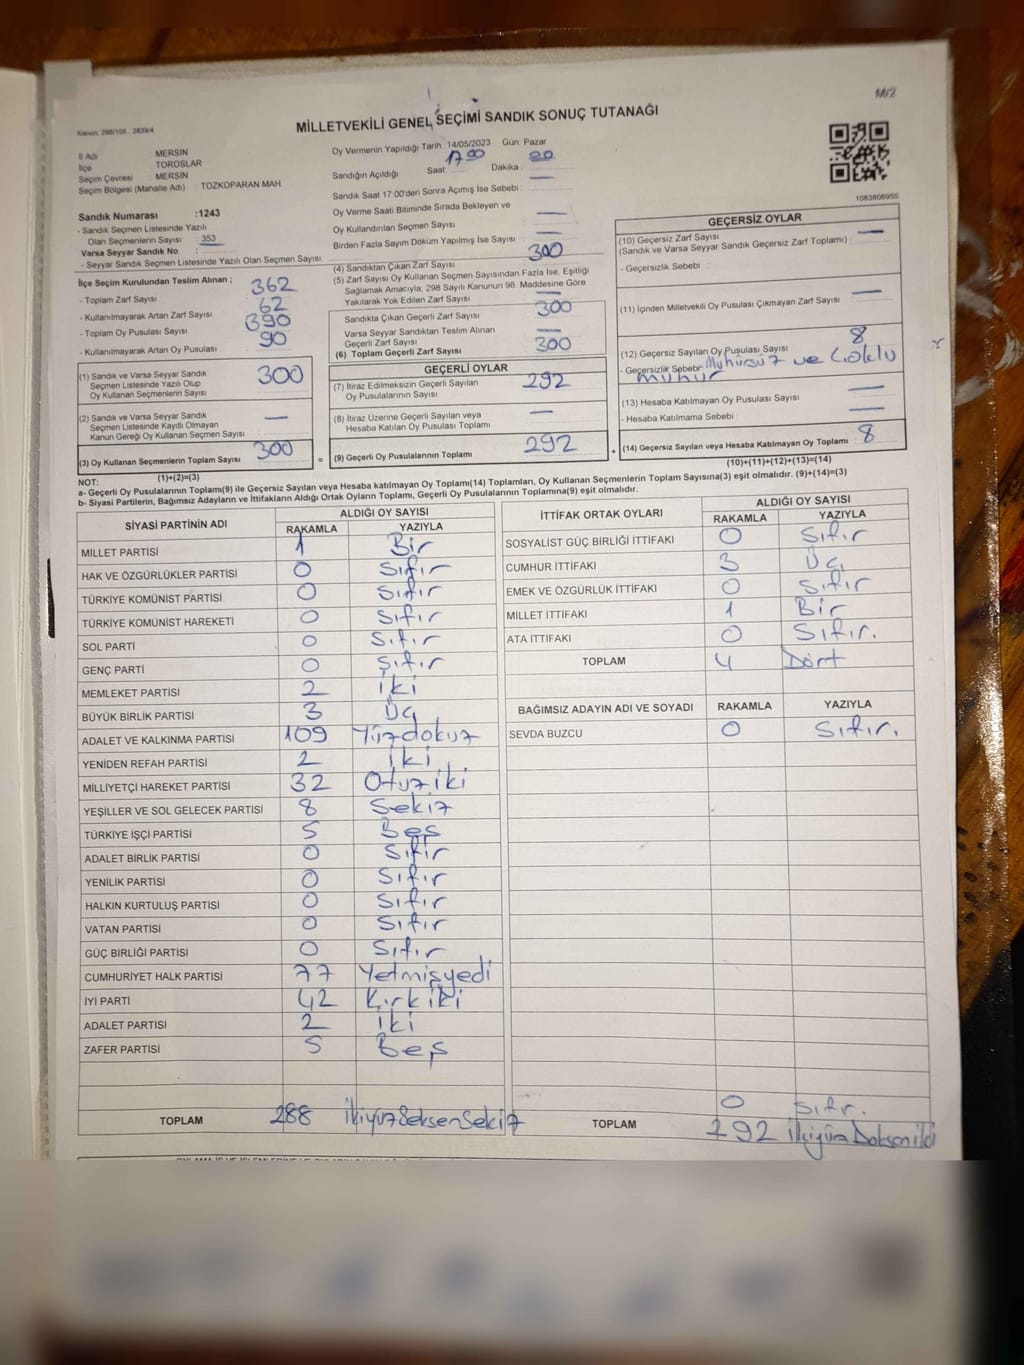 M/2
Kanun, 298/105 , 2839/4
MİLLETVEKİLİ GENEL SEÇİMİ SANDIK SONUÇ TUTANAĞI
İl Adı MERSİN
İlçe TOROSLAR
Seçim Çevresi MERSİN
Seçim Bölgesi (Mahalle Adı) : TOZKOPARAN MAH
Sandık Numarası :1243
- Sandık Seçmen Listesinde Yazılı
Olan Seçmenlerin Sayısı : 353
Varsa Seyyar Sandık No :
- Seyyar Sandık Seçmen Listesinde Yazılı Olan Seçmen Sayısı:
İlçe Seçim Kurulundan Teslim Alınan ;
- Toplam Zarf Sayısı : 362
- Kullanılmayarak Artan Zarf Sayısı : 62
- Toplam Oy Pusulası Sayısı : 390
- Kullanılmayarak Artan Oy Pusulası : 90
(1) Sandık ve Varsa Seyyar Sandık
Seçmen Listesinde Yazılı Olup
Oy Kullanan Seçmenlerin Sayısı 300
(2) Sandık ve Varsa Seyyar Sandık
Seçmen Listesinde Kayıtlı Olmayan
Kanun Gereği Oy Kullanan Seçmen Sayısı —
(3) Oy Kullanan Seçmenlerin Toplam Sayısı 300
(1)+(2)=(3)
Oy Vermenin Yapıldığı Tarih : 14/05/2023 Gün: Pazar
Sandığın Açıldığı Saat: 17 00 Dakika : 00
Sandık Saat 17:00'den Sonra Açımış İse Sebebi : —
Oy Verme Saati Bitiminde Sırada Bekleyen ve
Oy Kullandırılan Seçmen Sayısı —
Birden Fazla Sayım Döküm Yapılmış İse Sayısı : —
(4) Sandıktan Çıkan Zarf Sayısı 300
(5) Zarf Sayısı Oy Kullanan Seçmen Sayısından Fazla İse, Eşitliği
Sağlamak Amacıyla; 298 Sayılı Kanunun 98. Maddesine Göre
Yakılarak Yok Edilen Zarf Sayısı —
Sandıkta Çıkan Geçerli Zarf Sayısı 300
Varsa Seyyar Sandıktan Teslim Alınan
Geçerli Zarf Sayısı —
(6) Toplam Geçerli Zarf Sayısı 300
GEÇERLİ OYLAR
(7) İtiraz Edilmeksizin Geçerli Sayılan
Oy Pusulalarının Sayısı 292
(8) İtiraz Üzerine Geçerli Sayılan veya
Hesaba Katılan Oy Pusulası Toplamı —
= (9) Geçerli Oy Pusulalarının Toplamı 292
1083808950
GEÇERSİZ OYLAR
(10) Geçersiz Zarf Sayısı
(Sandık ve Varsa Seyyar Sandık Geçersiz Zarf Toplamı) : —
- Geçersizlik Sebebi :
(11) İçinden Milletvekili Oy Pusulası Çıkmayan Zarf Sayısı : —
(12) Geçersiz Sayılan Oy Pusulası Sayısı 8
- Geçersizlik Sebebi: Mühürsüz ve Çoklu
mühür
(13) Hesaba Katılmayan Oy Pusulası Sayısı : —
- Hesaba Katılmama Sebebi : —
+ (14) Geçersiz Sayılan veya Hesaba Katılmayan Oy Toplamı : 8
(10)+(11)+(12)+(13)=(14)
NOT:
a- Geçerli Oy Pusulalarının Toplamı(9) ile Geçersiz Sayılan veya Hesaba katılmayan Oy Toplamı(14) Toplamları, Oy Kullanan Seçmenlerin Toplam Sayısına(3) eşit olmalıdır. (9)+(14)=(3)
b- Siyasi Partilerin, Bağımsız Adayların ve İttifakların Aldığı Ortak Oyların Toplamı, Geçerli Oy Pusulalarının Toplamına(9) eşit olmalıdır.
SİYASİ PARTİNİN ADI ALDIĞI OY SAYISI
RAKAMLA YAZIYLA
MİLLET PARTİSİ 1 Bir
HAK VE ÖZGÜRLÜKLER PARTİSİ 0 Sıfır
TÜRKİYE KOMÜNİST PARTİSİ 0 Sıfır
TÜRKİYE KOMÜNİST HAREKETİ 0 Sıfır
SOL PARTİ 0 Sıfır
GENÇ PARTİ 0 Sıfır
MEMLEKET PARTİSİ 2 iki
BÜYÜK BİRLİK PARTİSİ 3 Üç
ADALET VE KALKINMA PARTİSİ 109 Yüzdokuz
YENİDEN REFAH PARTİSİ 2 iki
MİLLİYETÇİ HAREKET PARTİSİ 32 Otuziki
YEŞİLLER VE SOL GELECEK PARTİSİ 8 Sekiz
TÜRKİYE İŞÇİ PARTİSİ 5 Beş
ADALET BİRLİK PARTİSİ 0 Sıfır
YENİLİK PARTİSİ 0 Sıfır
HALKIN KURTULUŞ PARTİSİ 0 Sıfır
VATAN PARTİSİ 0 Sıfır
GÜÇ BİRLİĞİ PARTİSİ 0 Sıfır
CUMHURİYET HALK PARTİSİ 77 Yetmişyedi
İYİ PARTİ 42 Kırkiki
ADALET PARTİSİ 2 iki
ZAFER PARTİSİ 5 Beş
TOPLAM 288 ikiyüzSeksenSekiz
İTTİFAK ORTAK OYLARI ALDIĞI OY SAYISI
RAKAMLA YAZIYLA
SOSYALİST GÜÇ BİRLİĞİ İTTİFAKI 0 Sıfır
CUMHUR İTTİFAKI 3 Üç
EMEK VE ÖZGÜRLÜK İTTİFAKI 0 Sıfır
MİLLET İTTİFAKI 1 Bir
ATA İTTİFAKI 0 Sıfır.
TOPLAM 4 Dört
BAĞIMSIZ ADAYIN ADI VE SOYADI RAKAMLA YAZIYLA
SEVDA BUZCU 0 Sıfır.
0 Sıfır.
TOPLAM 292 ikiyüzDoksaniki